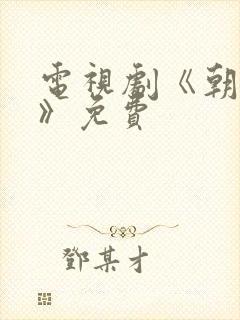 電視劇《朝
》免費
鄧某才